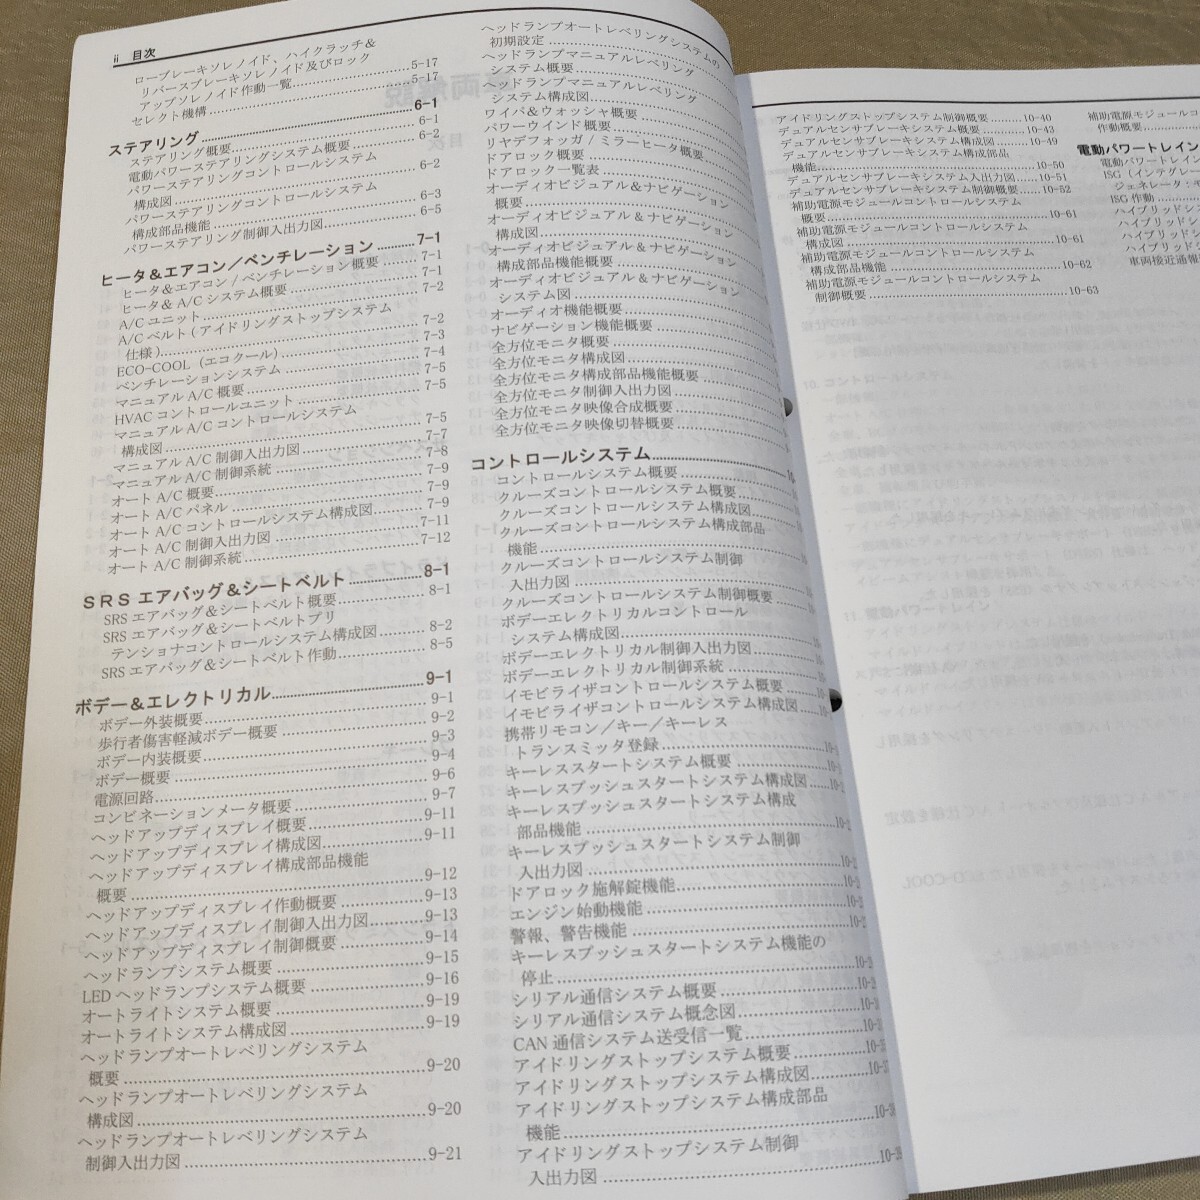 ii 目次
ローブレーキソレノイド、ハイクラッチ＆
リバースブレーキソレノイド及びロック
アップソレノイド作動一覧 5-17
セレクト機構 5-17
ステアリング 6-1
ステアリング概要 6-1
電動パワーステアリングシステム概要 6-2
パワーステアリングコントロールシステム
構成図 6-2
パワーステアリングコントロールシステム
構成部品機能 6-3
パワーステアリング制御入出力図 6-5
ヒータ＆エアコン／ベンチレーション 7-1
ヒータ＆エアコン / ベンチレーション概要 7-1
ヒータ＆ A/C システム概要 7-1
A/C ユニット 7-2
A/C ベルト ( アイドリングストップシステム
仕様 ) 7-2
ECO-COOL（エコクール) 7-3
ベンチレーションシステム 7-4
マニュアル A/C 概要 7-5
HVAC コントロールユニット 7-5
マニュアル A/C コントロールシステム
構成図 7-5
マニュアル A/C 制御入出力図 7-7
マニュアル A/C 制御系統 7-8
オート A/C 概要 7-9
オート A/C パネル 7-9
オート A/C コントロールシステム構成図 7-9
オート A/C 制御入出力図 7-11
オート A/C 制御系統 7-12
ＳＲＳ エアバッグ＆シートベルト 8-1
SRS エアバッグ＆シートベルト概要 8-1
SRS エアバッグ＆シートベルトプリ
テンショナコントロールシステム構成図 8-2
SRS エアバッグ＆シートベルト作動 8-5
ボデー＆エレクトリカル 9-1
ボデー外装概要 9-1
歩行者傷害軽減ボデー概要 9-2
ボデー内装概要 9-3
ボデー概要 9-4
電源回路 9-6
コンビネーションメータ概要 9-7
ヘッドアップディスプレイ概要 9-11
ヘッドアップディスプレイ構成図 9-11
ヘッドアップディスプレイ構成部品機能
概要 9-12
ヘッドアップディスプレイ作動概要 9-13
ヘッドアップディスプレイ制御入出力図 9-13
ヘッドアップディスプレイ制御概要 9-14
ヘッドランプシステム概要 9-15
LED ヘッドランプシステム概要 9-16
オートライトシステム概要 9-19
オートライトシステム構成図 9-19
ヘッドランプオートレベリングシステム
概要 9-20
ヘッドランプオートレベリングシステム
構成図 9-20
ヘッドランプオートレベリングシステム
制御入出力図 9-21
ヘッドランプオートレベリングシステムの
初期設定
ヘッドランプマニュアルレベリング
システム概要
ヘッドランプマニュアルレベリング
システム構成図
ワイパ＆ウォッシャ概要
パワーウインド概要
リヤデフォッガ / ミラーヒータ概要
ドアロック概要
ドアロック一覧表
オーディオビジュアル＆ナビゲーション
概要
オーディオビジュアル & ナビゲーション
構成図
オーディオビジュアル & ナビゲーション
構成部品機能概要
オーディオビジュアル & ナビゲーション
システム図
オーディオ機能概要
ナビゲーション機能概要
全方位モニタ概要
全方位モニタ構成図
全方位モニタ構成部品機能概要
全方位モニタ制御入出力図
全方位モニタ映像合成概要
全方位モニタ映像切替概要
コントロールシステム 10
コントロールシステム概要
クルーズコントロールシステム概要
クルーズコントロールシステム構成図
クルーズコントロールシステム構成部品
機能
クルーズコントロールシステム制御
入出力図
クルーズコントロールシステム制御概要
ボデーエレクトリカルコントロール
システム構成図
ボデーエレクトリカル制御入出力図
ボデーエレクトリカル制御系統
イモビライザコントロールシステム概要
イモビライザコントロールシステム構成図
携帯リモコン／キー／キーレス
トランスミッタ登録
キーレススタートシステム概要
キーレスプッシュスタートシステム構成図
キーレスプッシュスタートシステム構成
部品機能
キーレスプッシュスタートシステム制御
入出力図
ドアロック施解錠機能
エンジン始動機能
警報、警告機能
キーレスプッシュスタートシステム機能の
停止
シリアル通信システム概要
シリアル通信システム概念図
CAN 通信システム送受信一覧
アイドリングストップシステム概要
アイドリングストップシステム構成図
アイドリングストップシステム構成部品
機能
アイドリングストップシステム制御
入出力図
アイドリングストップシステム制御概要 10-40
デュアルセンサブレーキシステム概要 10-43
デュアルセンサブレーキシステム構成図 10-49
デュアルセンサブレーキシステム構成部品
機能 10-50
デュアルセンサブレーキシステム入出力図 10-51
デュアルセンサブレーキシステム制御概要 10-52
補助電源モジュールコントロールシステム
概要 10-61
補助電源モジュールコントロールシステム
構成図 10-61
補助電源モジュールコントロールシステム
構成部品機能 10-62
補助電源モジュールコントロールシステム
制御概要 10-63
補助電源モジュールコ
作動概要
電動パワートレイン
電動パワートレイン
ISG（インテグレー
ジェネレータ：モ
ISG 作動
ハイブリッドシ
ハイブリッドシ
ハイブリッドシ
車両接近通報